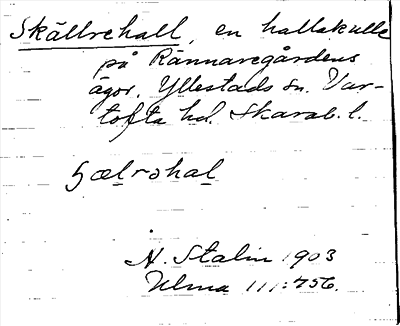 Skällrehall, en hallakulle
på Rännaregårdens
ägor. Yllestads sn. Var-
tofta hd. Skarab. l.
ʃælrəhal
N. Stalin 1903
Ulma 111:756.